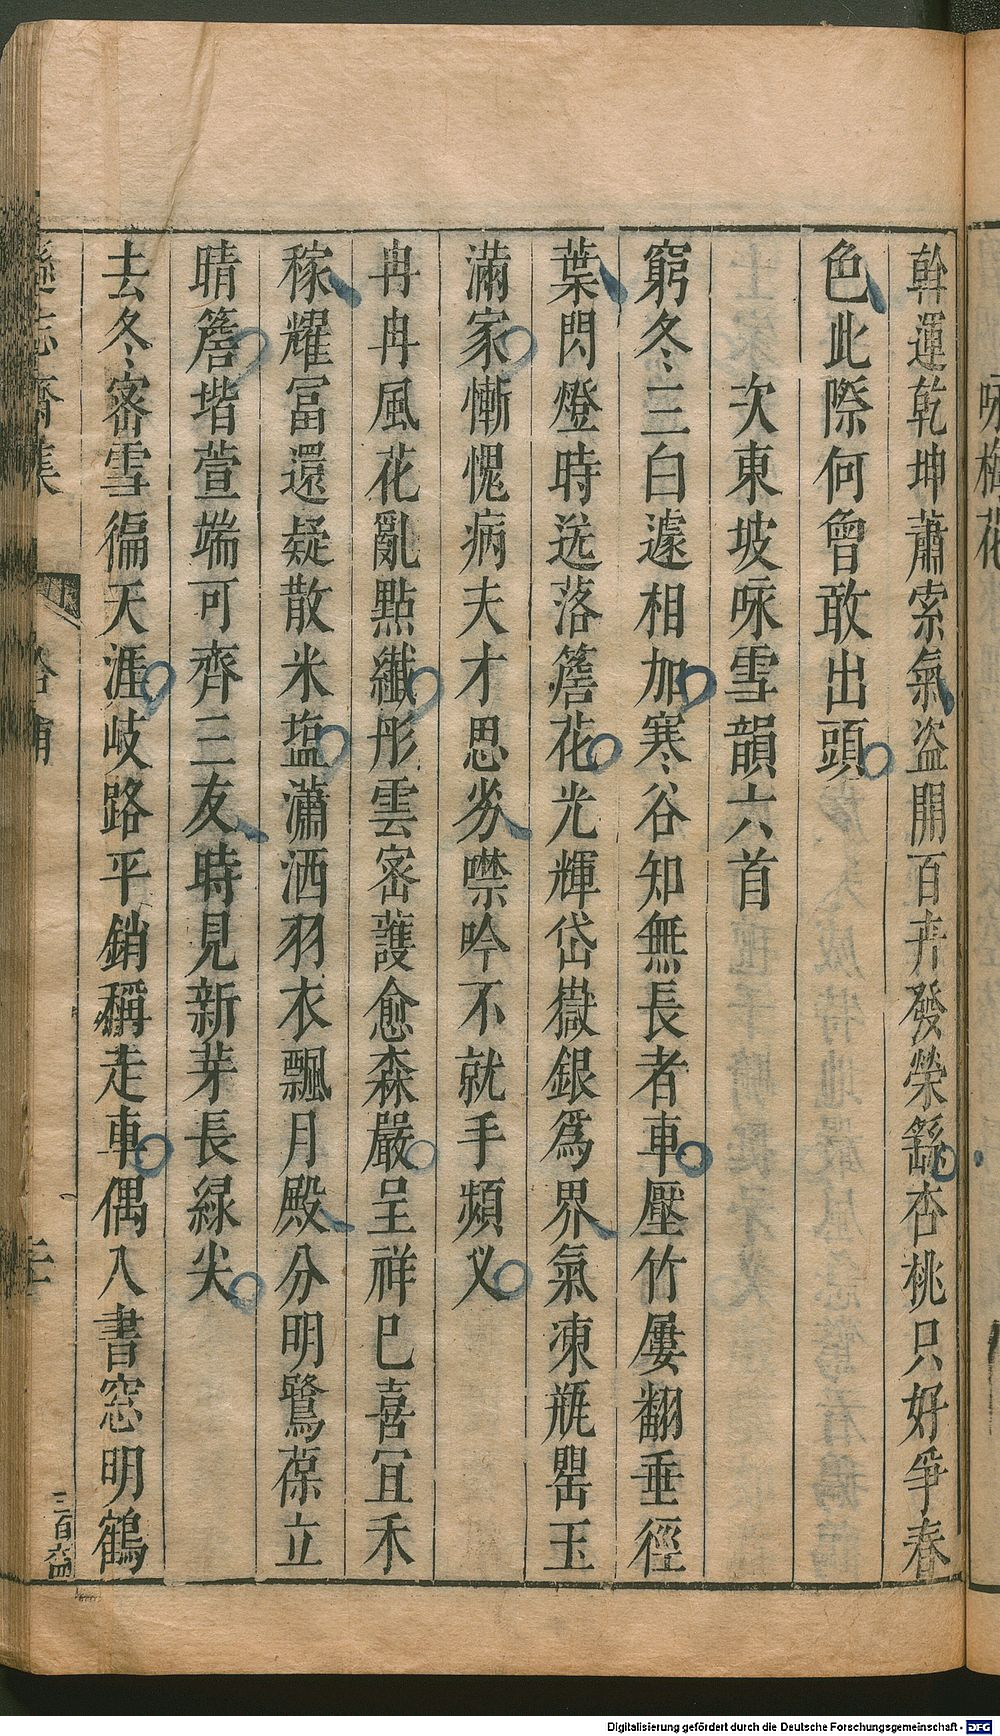 咏梅花
幹運乾坤蕭索氣盜開百卉發榮繇杏桃只好爭春
色此際何曾敢出頭
次東坡咏雪韻六首
窮冬三白遽相加寒谷知無長者車壓竹屢翻垂徑
葉閃燈時送落簷花光輝岱嶽銀爲界氣凍瓶罌玉
滿家慚愧病夫才思劣噤吟不就手頻义
冉冉風花亂點纖彤雲密護愈森嚴呈祥已喜宜禾
稼耀冨還疑散米塩瀟洒羽衣飄月殿分明鷺葆立
晴簷堦萱端可齊三友時見新芽長緑尖
去冬密雪徧天涯岐路平銷稱走車偶入書窓明鶴
遜志齋集
拾補
三百六十
Digitalisierung gefördert durch die Deutsche Forschungsgemeinschaft - DFG